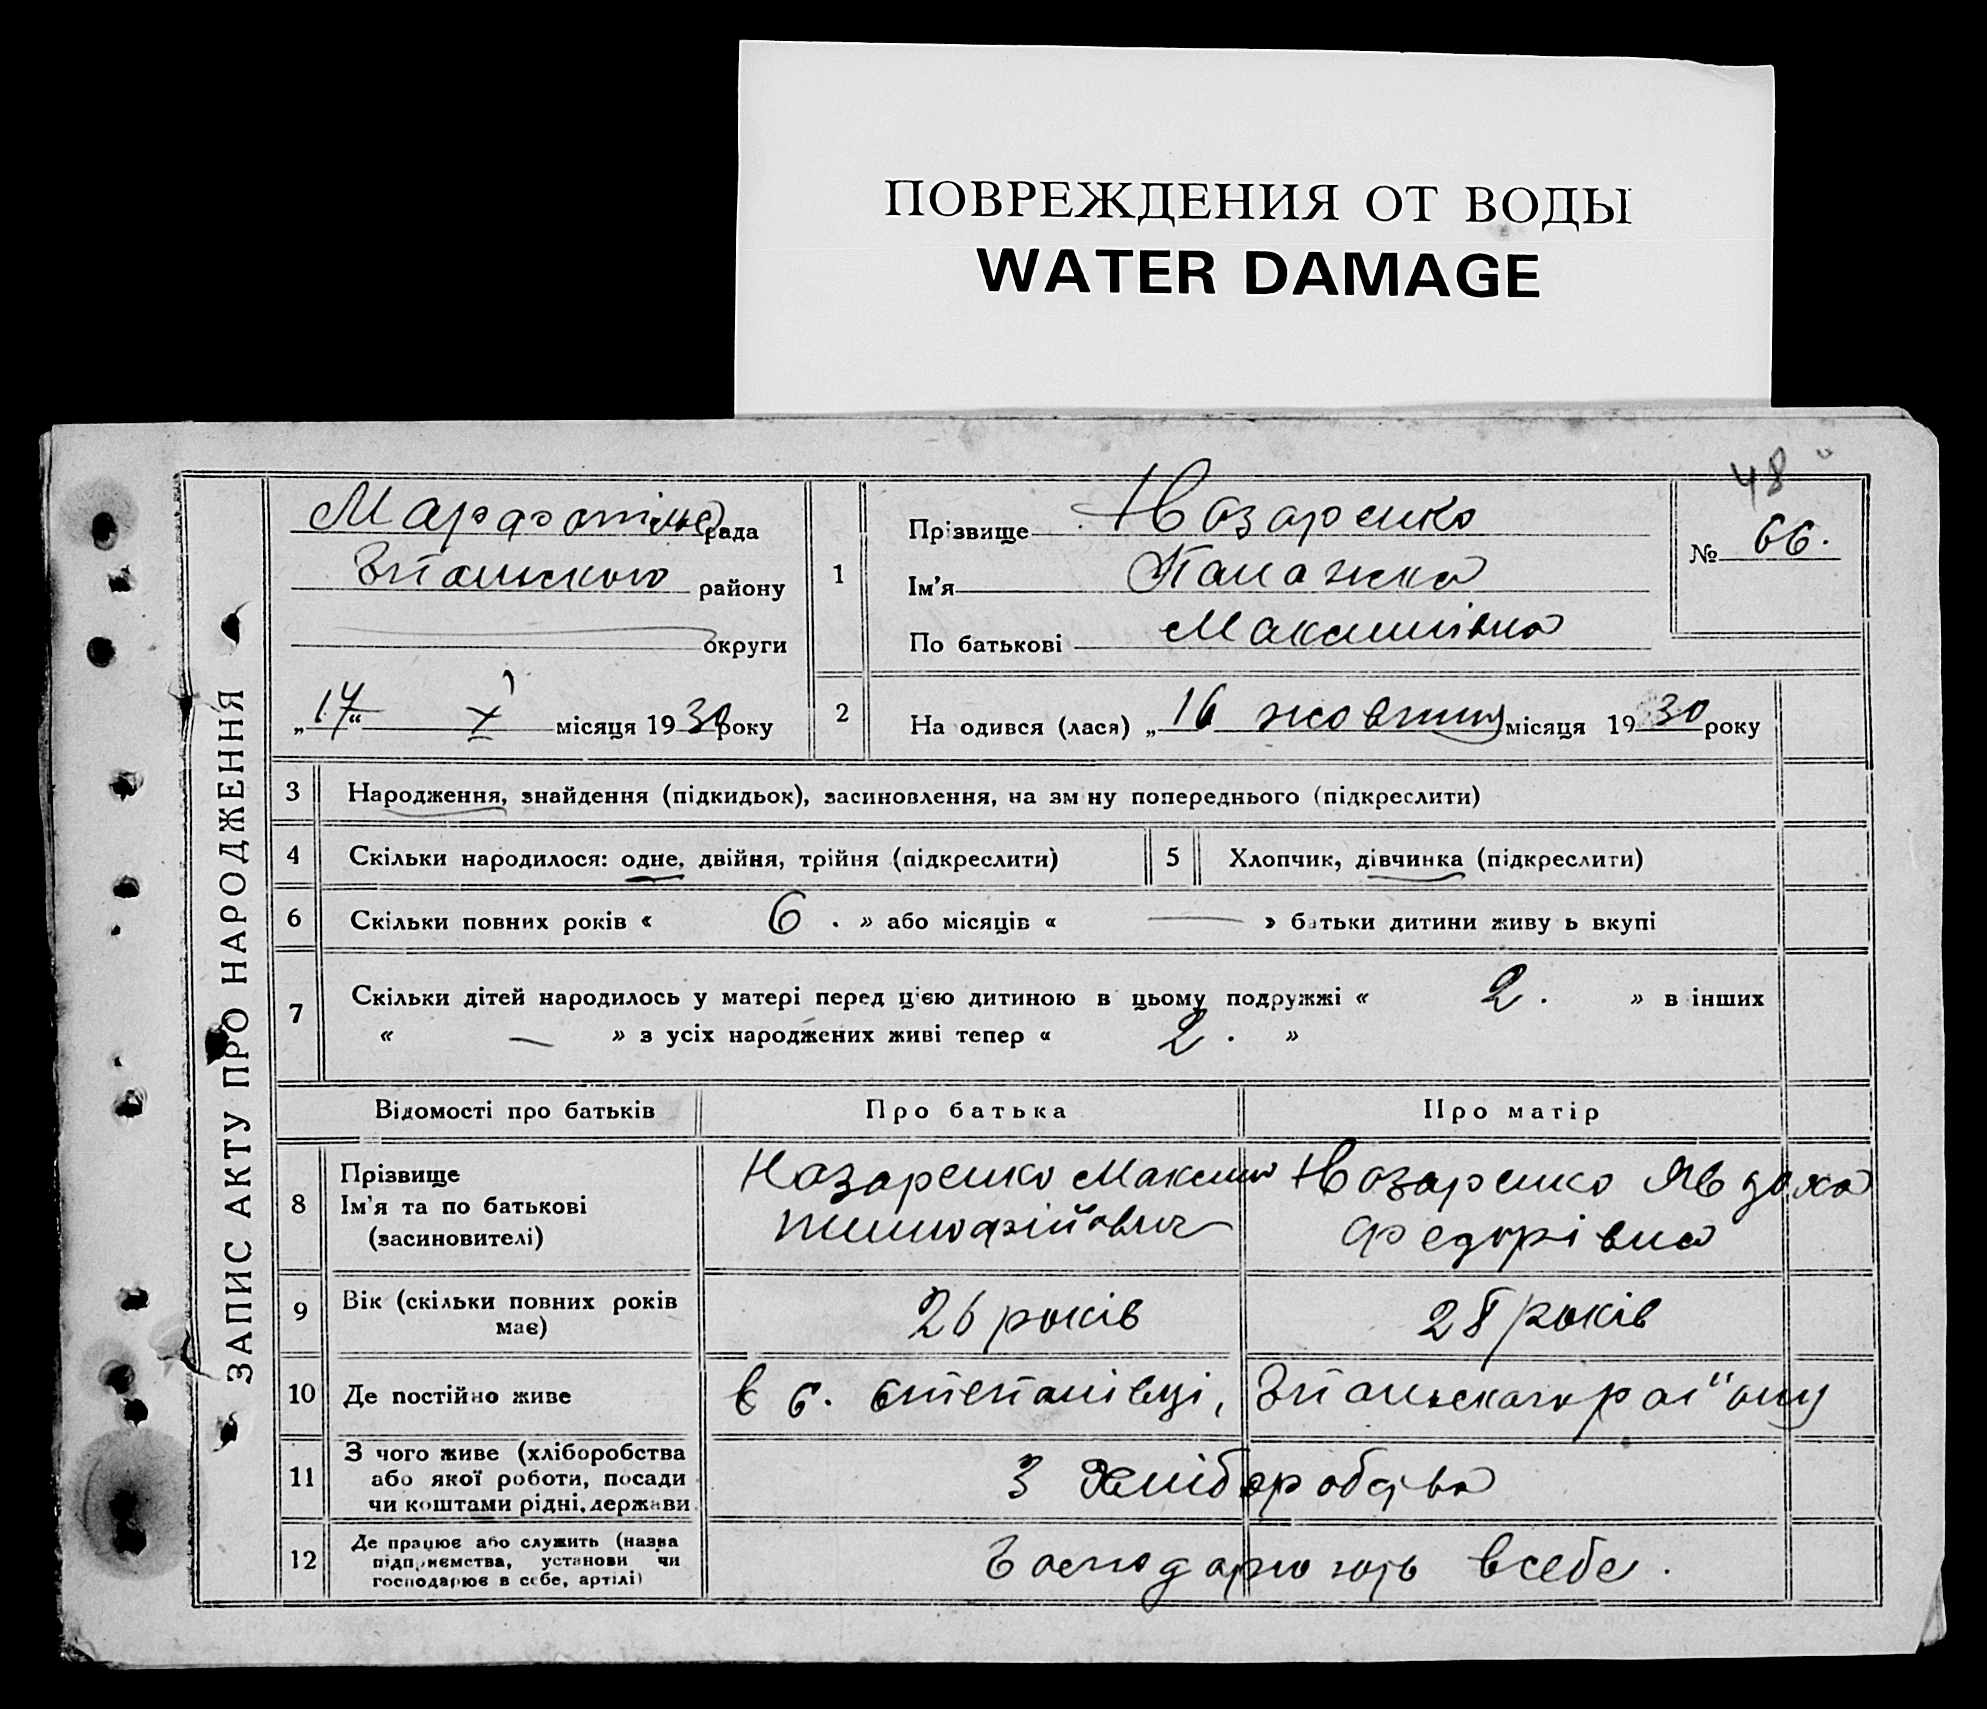 ПОВРЕЖДЕНИЯ ОТ ВОДЫ
WATER DAMAGE
48
ЗАПИС АКТУ ПРО НАРОДЖЕННЯ
рада
району
округи
„17“ X місяця 1930 року
1
Прізвище Назаренко
Ім'я Палажка
По батькові Максимівна
№ 66.
2 На одився (лася) „16 жовтня місяця 1930 року
3 Народження, знайдення (підкидьок), засиновлення, на зм ну попереднього (підкреслити)
4 Скільки народилося: одне, двійня, трійня (підкреслити)
5 Хлопчик, дівчинка (підкреслити)
6 Скільки повних років « 6 . » або місяців « — » батьки дитини живу ь вкупі
7 Скільки дітей народилось у матері перед цією дитиною в цьому подружжі « 2 . » в інших
« — » з усіх народжених живі тепер « 2 . »
Відомості про батьків Про батька Про матір
8 Прізвище
Ім'я та по батькові
(засиновителі)
Назаренко Максим
Тимофійович
Назаренко Явдоха
Федорівна
9 Вік (скільки повних років
має)
26 років 28 років
10 Де постійно живе в с. Степанівці, району
11 З чого живе (хліборобства
або якої роботи, посади
чи коштами рідні, держави
З хліборобства
12 Де працює або служить (назва
підприємства, установи чи
господарює в себе, артілі)
Господарюють в себе.